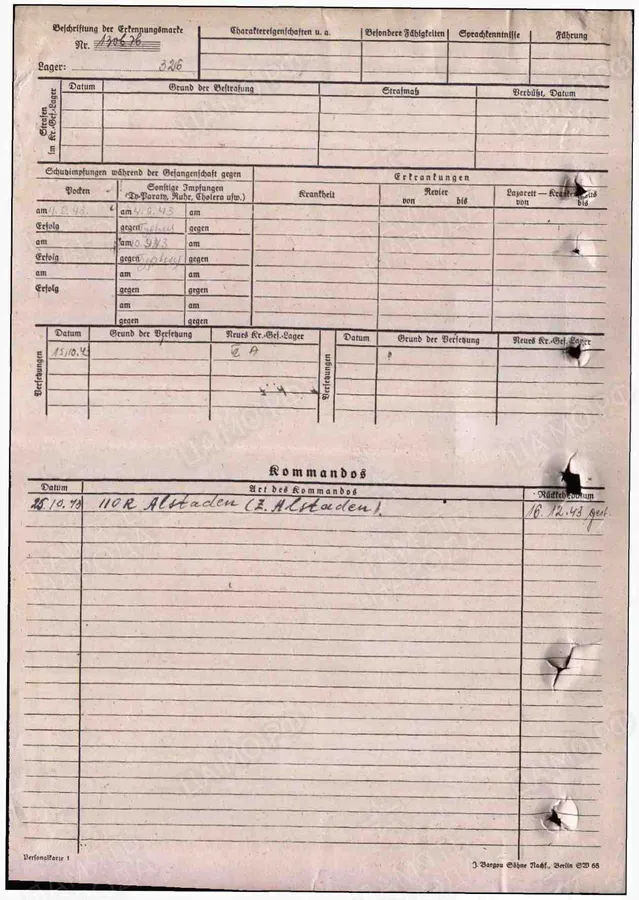 Beschriftung der Erkennungsmarke
Nr. 130676
Lager: 326
Charaktereigenschaften u. a.
Besondere Fähigkeiten
Sprachkenntnisse
Führung
Strafen im Kr.-Gef.-Lager
Datum
Grund der Bestrafung
Strafmaß
Verbüßt, Datum
Schutzimpfungen während der Gefangenschaft gegen
Erkrankungen
Pocken
Sonstige Impfungen
(Ty-Paraty, Ruhr, Cholera usw.)
Krankheit
Revier
von bis
Lazarett — Krankenhaus
von bis
am am 4.9.43 am
Erfolg gegen Typhus gegen
am am 10.9.43 am
Erfolg gegen Typhus gegen
am am am
Erfolg gegen gegen
am am
gegen gegen
Versetzungen
Datum
Grund der Versetzung
Neues Kr.-Gef.-Lager
15.10.43
VI A
Versetzungen
Datum
Grund der Versetzung
Neues Kr.-Gef.-Lager
Kommandos
Datum
Art des Kommandos
Rückkehrdatum
25.10.43 110 R Alstaden (Z. Alstaden). 16.12.43 gest.
Personalkarte 1
J. Bargou Söhne Nachf., Berlin SW 68
ЦАМО РФ